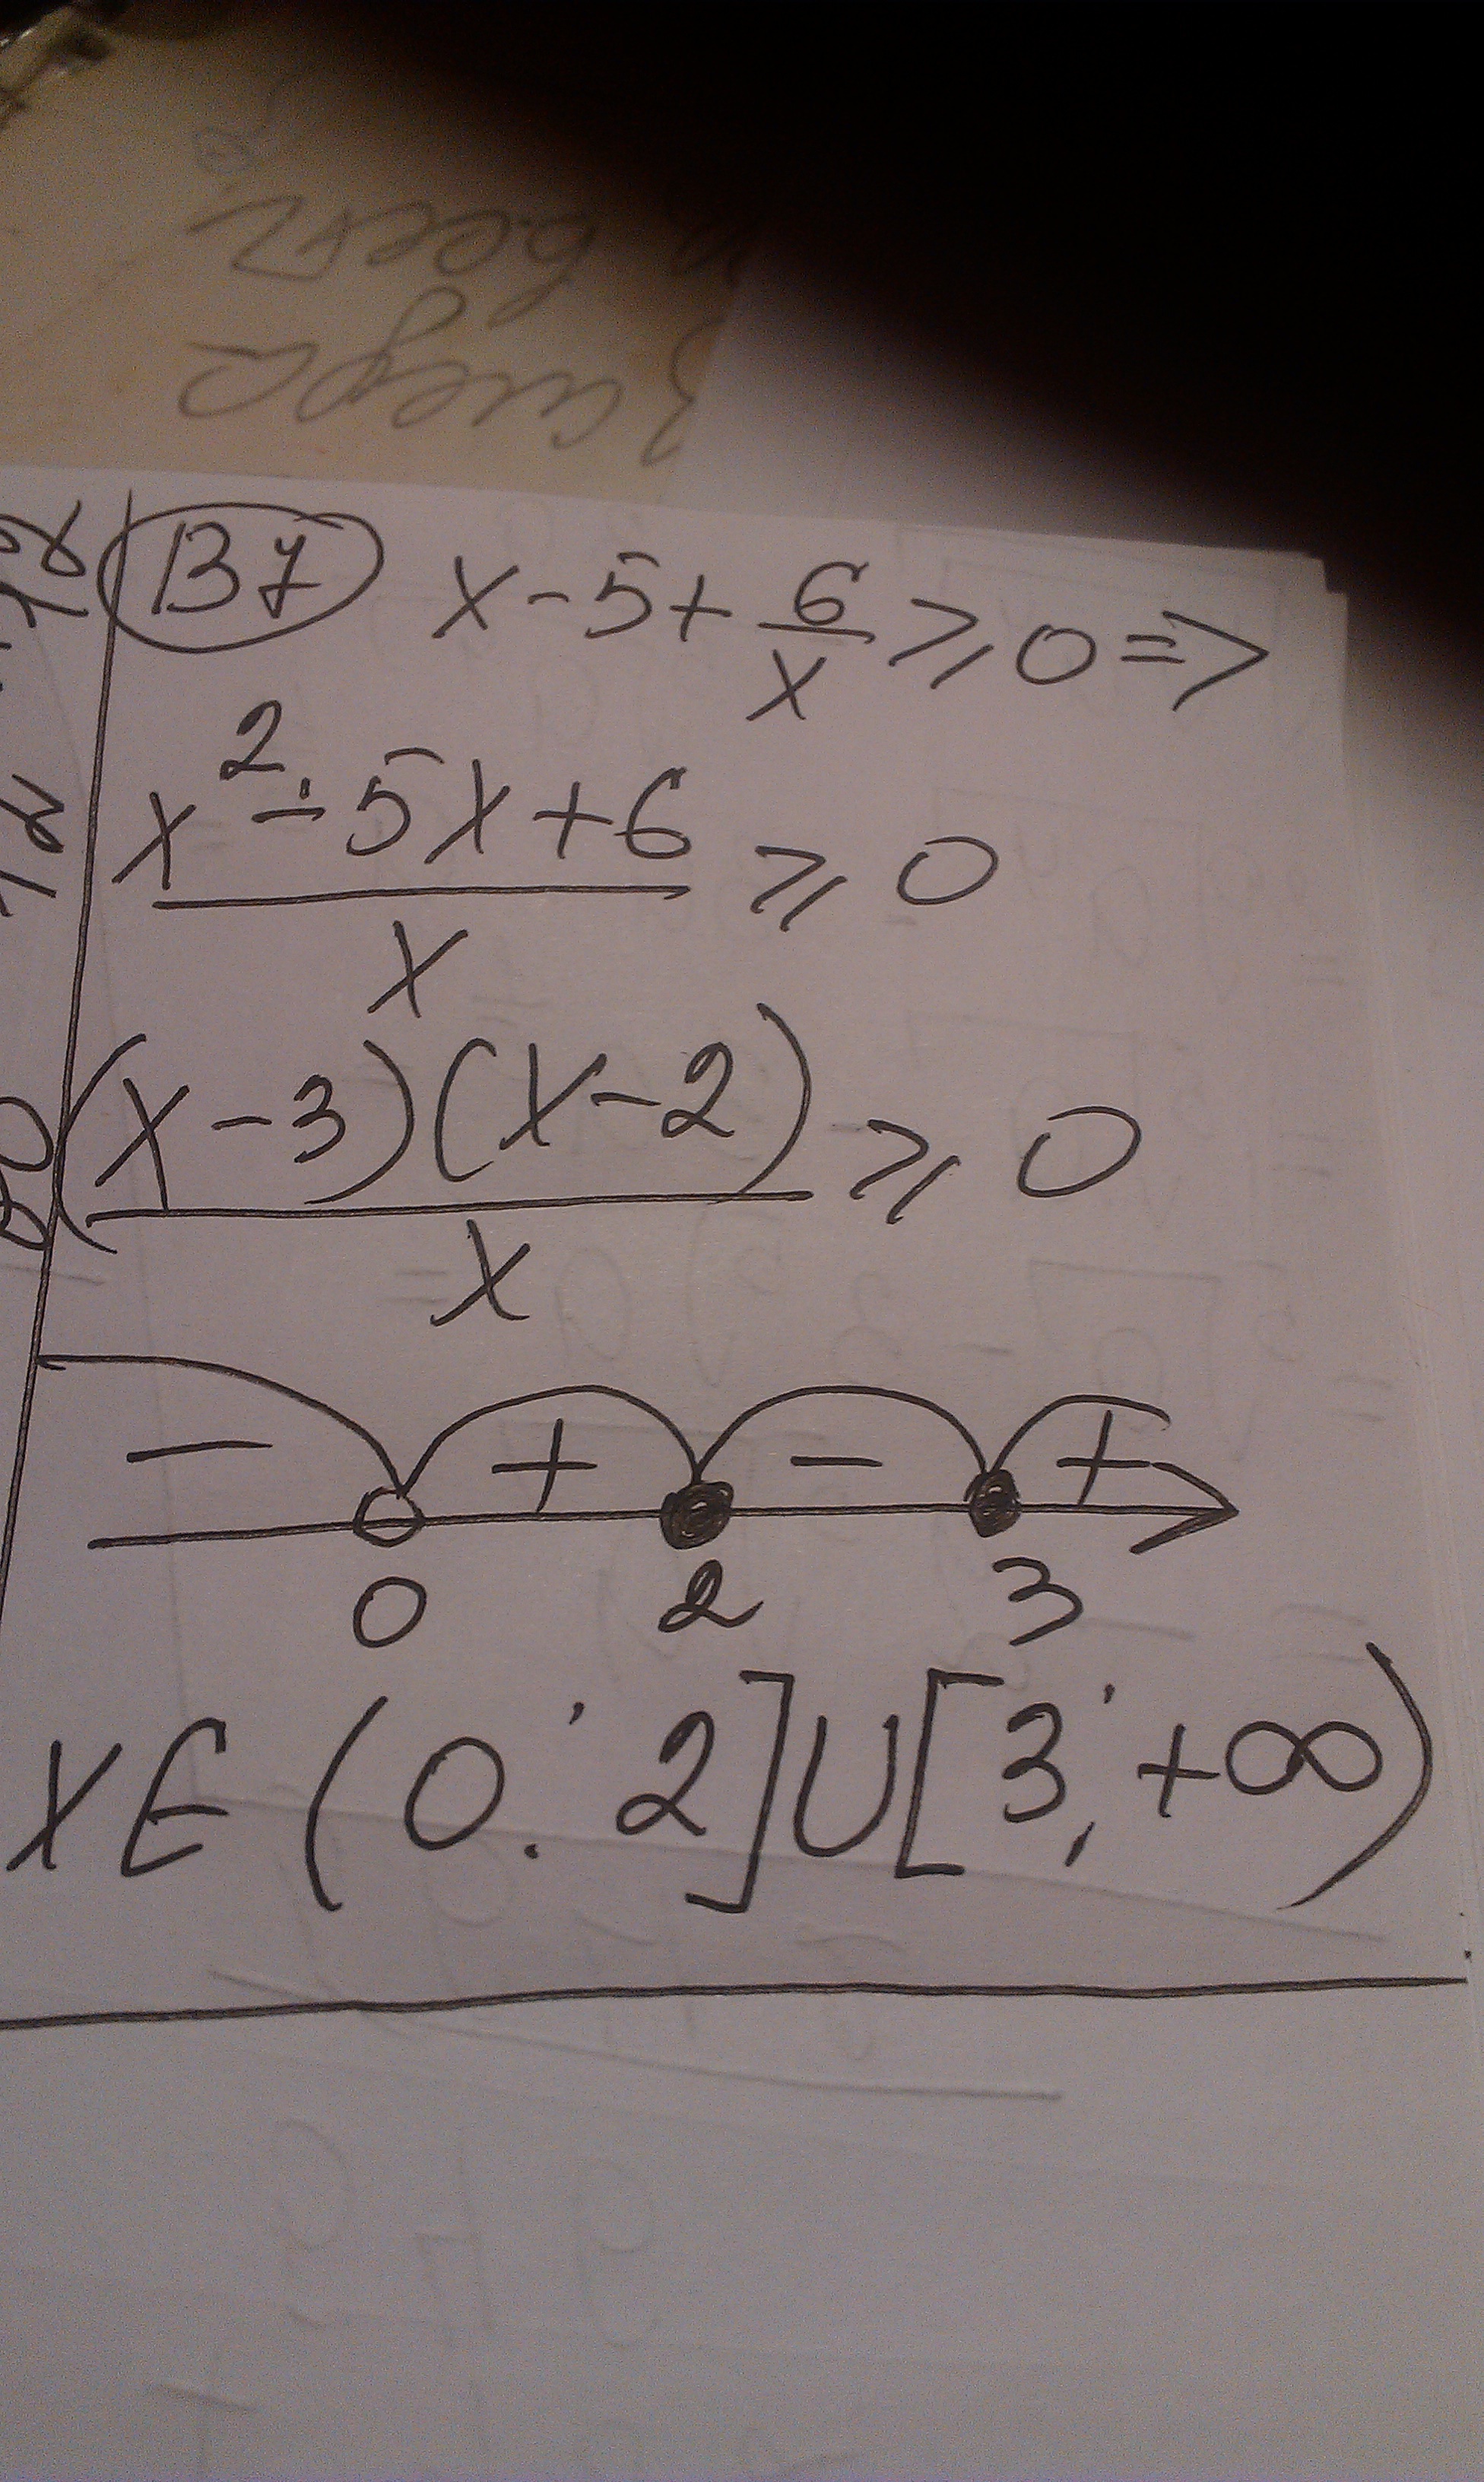 В7 x - 5 + 6/x ⩾ 0 =>
x² - 5x + 6 / x ⩾ 0
(x - 3)(x - 2) / x ⩾ 0
- + - +
0 2 3
x ∈ (0; 2] ∪ [3; +∞)